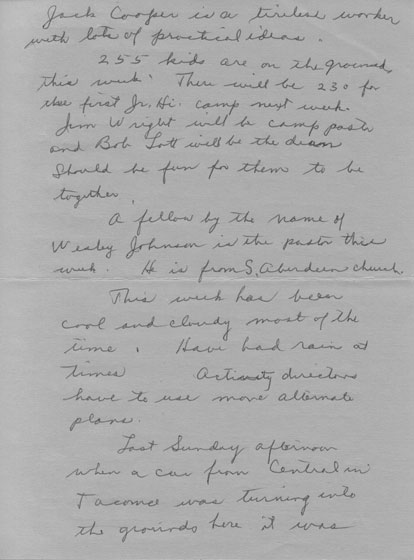 Jack Cooper is a tireless worker
with lots of practical ideas.
255 kids are on the grounds
this week! There will be 230 for
the first Jr. Hi. camp next week.
Jim Wright will be camp pastor
and Bob Lott will be the dean
Should be fun for them to be
together.
A fellow by the name of
Wesley Johnson is the pastor this
week. He is from S. Aberdeen church.
This week has been
cool and cloudy most of the
time. Have had rain at
times Activity directors
have to use more alternate
plans.
Last Sunday afternoon
when a car from Central in
Tacoma was turning into
the grounds here it was